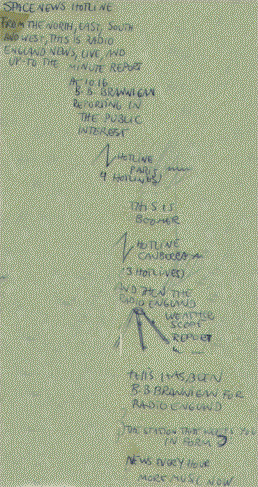 SPACE NEWS HOTLINE
FROM THE NORTH, EAST, SOUTH
AND WEST, THIS IS RADIO
ENGLAND NEWS, LIVE, AND
UP-TO THE MINUTE REPORT
AT 10.16
B.B. BRANNIGAN
REPORTING IN
THE PUBLIC
INTEREST
HOTLINE
PARIS
4 HOTLINES
THIS IS
BOOMER
HOTLINE
(3 HOTLINES)
AND THEN THE
RADIO ENGLAND
WEATHER
SCOPE
REPORT
THIS HAS BEEN
B.B. BRANNIGAN FOR
RADIO ENGLAND
THE STATION THAT KEEPS YOU
IN FORM
NEWS EVERY HOUR
MORE MUSIC NOW